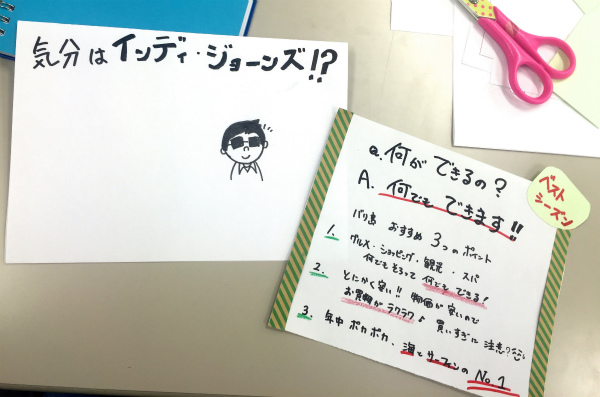 気分はインディ・ジョーンズ!?
Q.何ができるの?
A.何でもできます!!
ベスト
シーズン
バリ島 おすすめ 3つのポイント
1. グルメ・ショッピング・観光・スパ
何でもそろって何でもできる!
2. とにかく安い!! 物価が安いので
お買物がラクラク♪ 買いすぎに注意
3. 年中ポカポカ、海とサーフィンのNo.1